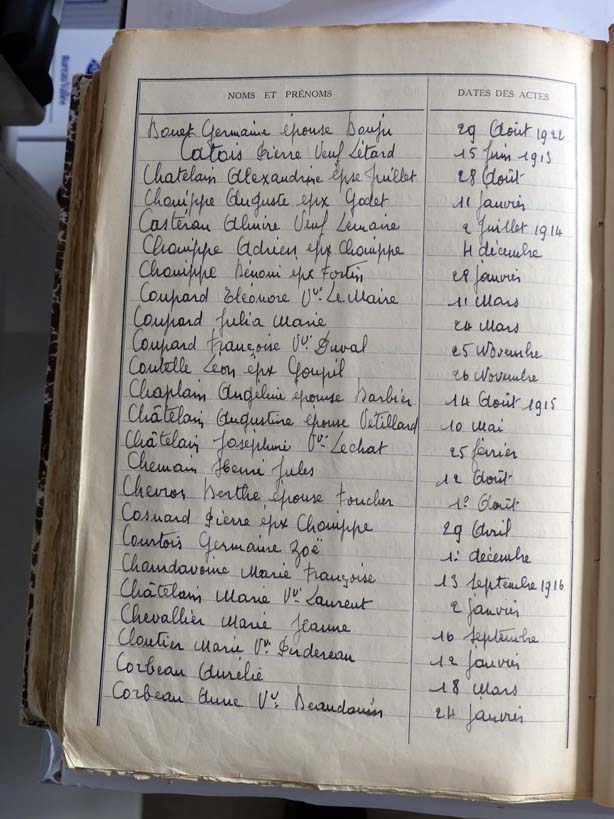 Bureau Vallée
NOMS ET PRÉNOMS DATES DES ACTES
Germaine épouse 29 Août 1922
Calois Pierre Veuf Létard 15 Juin 1913
Chatelain Alexandrine épse Juillet 28 Août
Chouippe Auguste epx Godet 11 janvier
Casteran Veuf Lemaire 2 Juillet 1914
Chouippe Adrien epx Chouippe 4 décembre
Chouippe Bénoni epx Fortin 28 janvier
Coupard Eléonore Vve Le Maire 11 Mars
Coupard Julia Marie 24 Mars
Coupard Françoise Vve Duval 25 Novembre
Coutelle Léon epx Goupil 26 Novembre
Chaplain Angéline épouse Barbier 14 Août 1915
Châtelain Augustine épouse Vétillard 10 Mai
Châtelain Joséphine Vve Lechat 25 février
Chemain Henri Jules 12 Août
Chevron Berthe épouse Foucher 1er Août
Cosnard Pierre epx Chouippe 29 Avril
Courtois Germaine Zoë 1er décembre
Chamdavoine Marie Françoise 13 Septembre 1916
Châtelain Marie Vve Laurent 2 janvier
Chevallier Marie Jeanne 16 Septembre
Cloutier Marie Vve 12 Janvier
Corbeau Aurélie 18 Mars
Corbeau Anne Vve Beaudouin 24 janvier